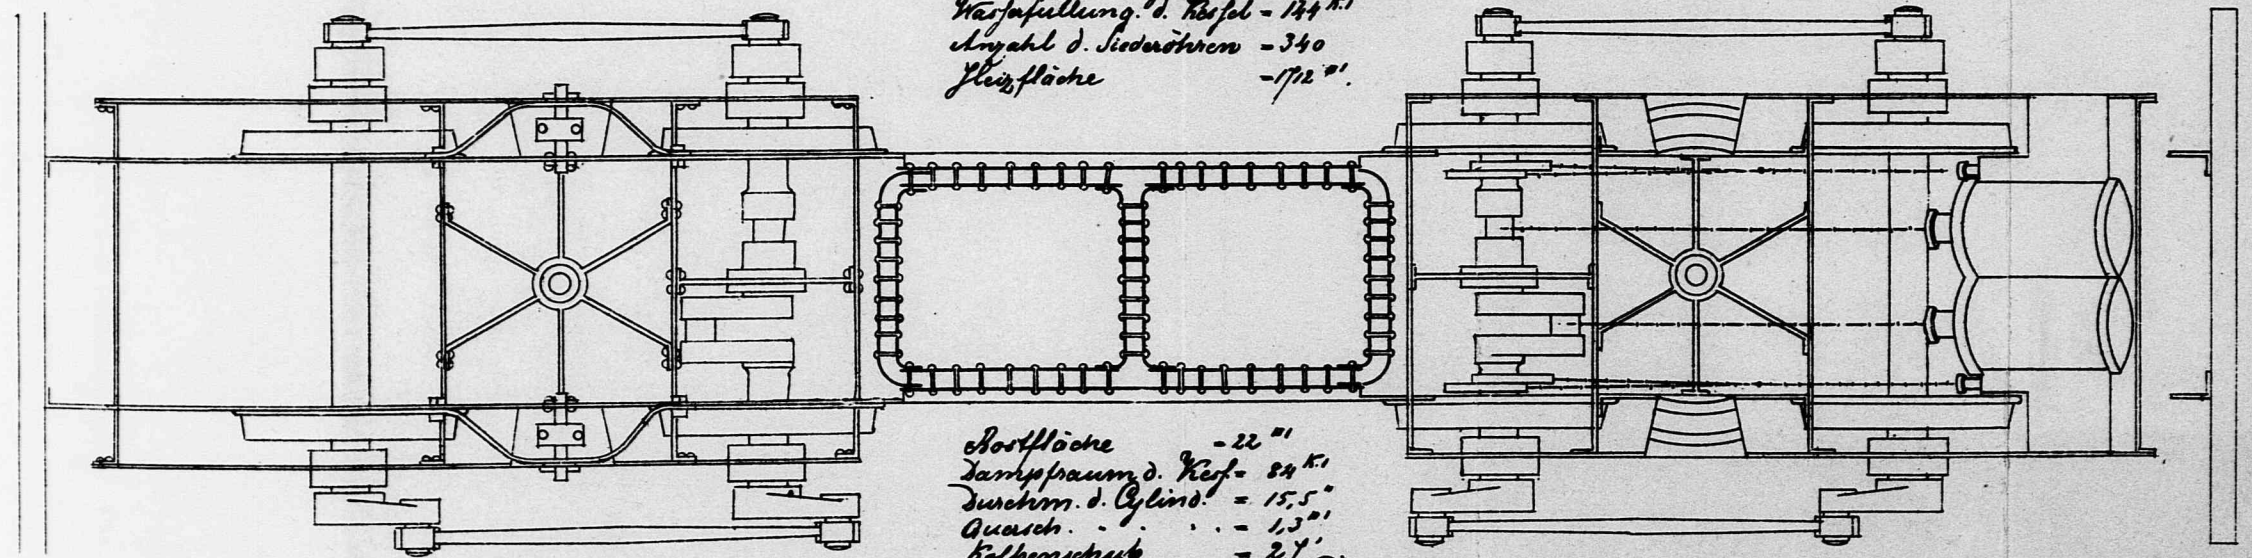 Wasserfüllung. d. Kessel = 144 K.'
Anzahl d. Siederöhren = 340
Heizfläche = 1712 □'.
Rostfläche = 22 □'
Dampfraum d. Kess. = 84 K.'
Durchm. d. Cylind. = 15,5"
Quersch. . . . . = 1,3 □'
Kolbenschub =